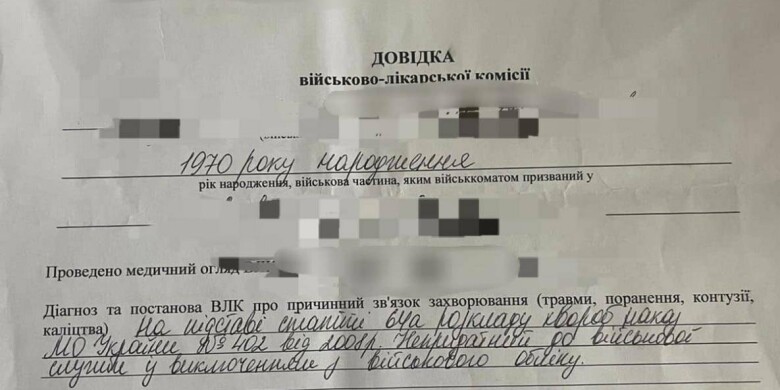 ДОВІДКА
військово-лікарської комісії
1970 року народження
рік народження, військова частина, яким військкоматом призваний у
Проведено медичний огляд
Діагноз та постанова ВЛК про причинний зв'язок захворювання (травми, поранення, контузії,
каліцтва) На підставі статті 64а розкладу хвороб наказ
МО України №402 від 2008р. Непридатний до військової
служби з виключенням з військового обліку.